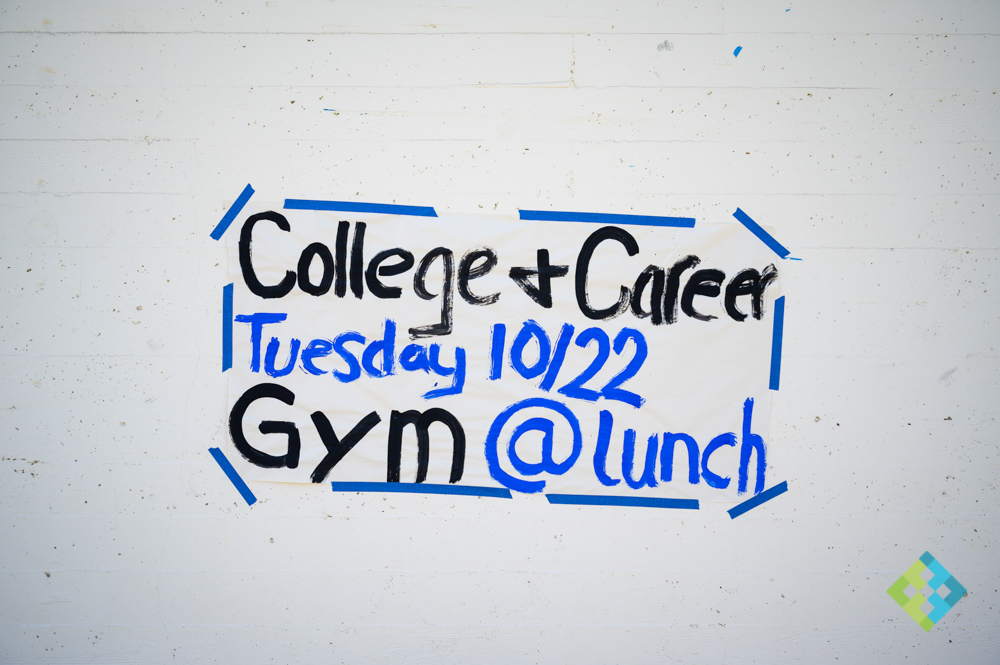 College + Career
Tuesday 10/22
Gym @lunch